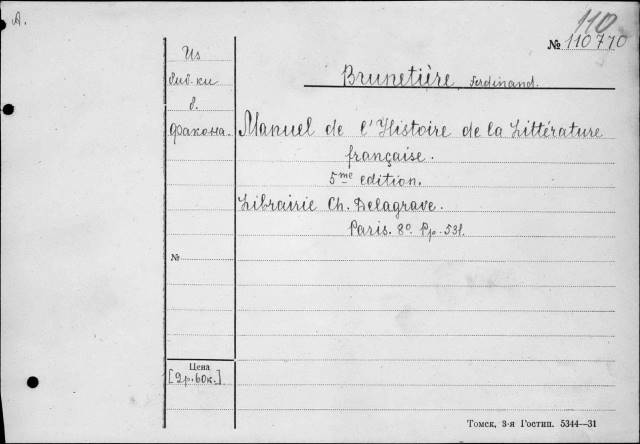 А.
110
№ 110770
Из
биб-ки
в.
факона.
Brunetière, Ferdinand.
Manuel de l'Histoire de la Littérature
française.
5me edition.
Librairie Ch. Delagrave.
Paris. 8º. Pp. 531.
№
Цена
[2р. 60к.]
Томск, 3-я Гостип. 5344—31